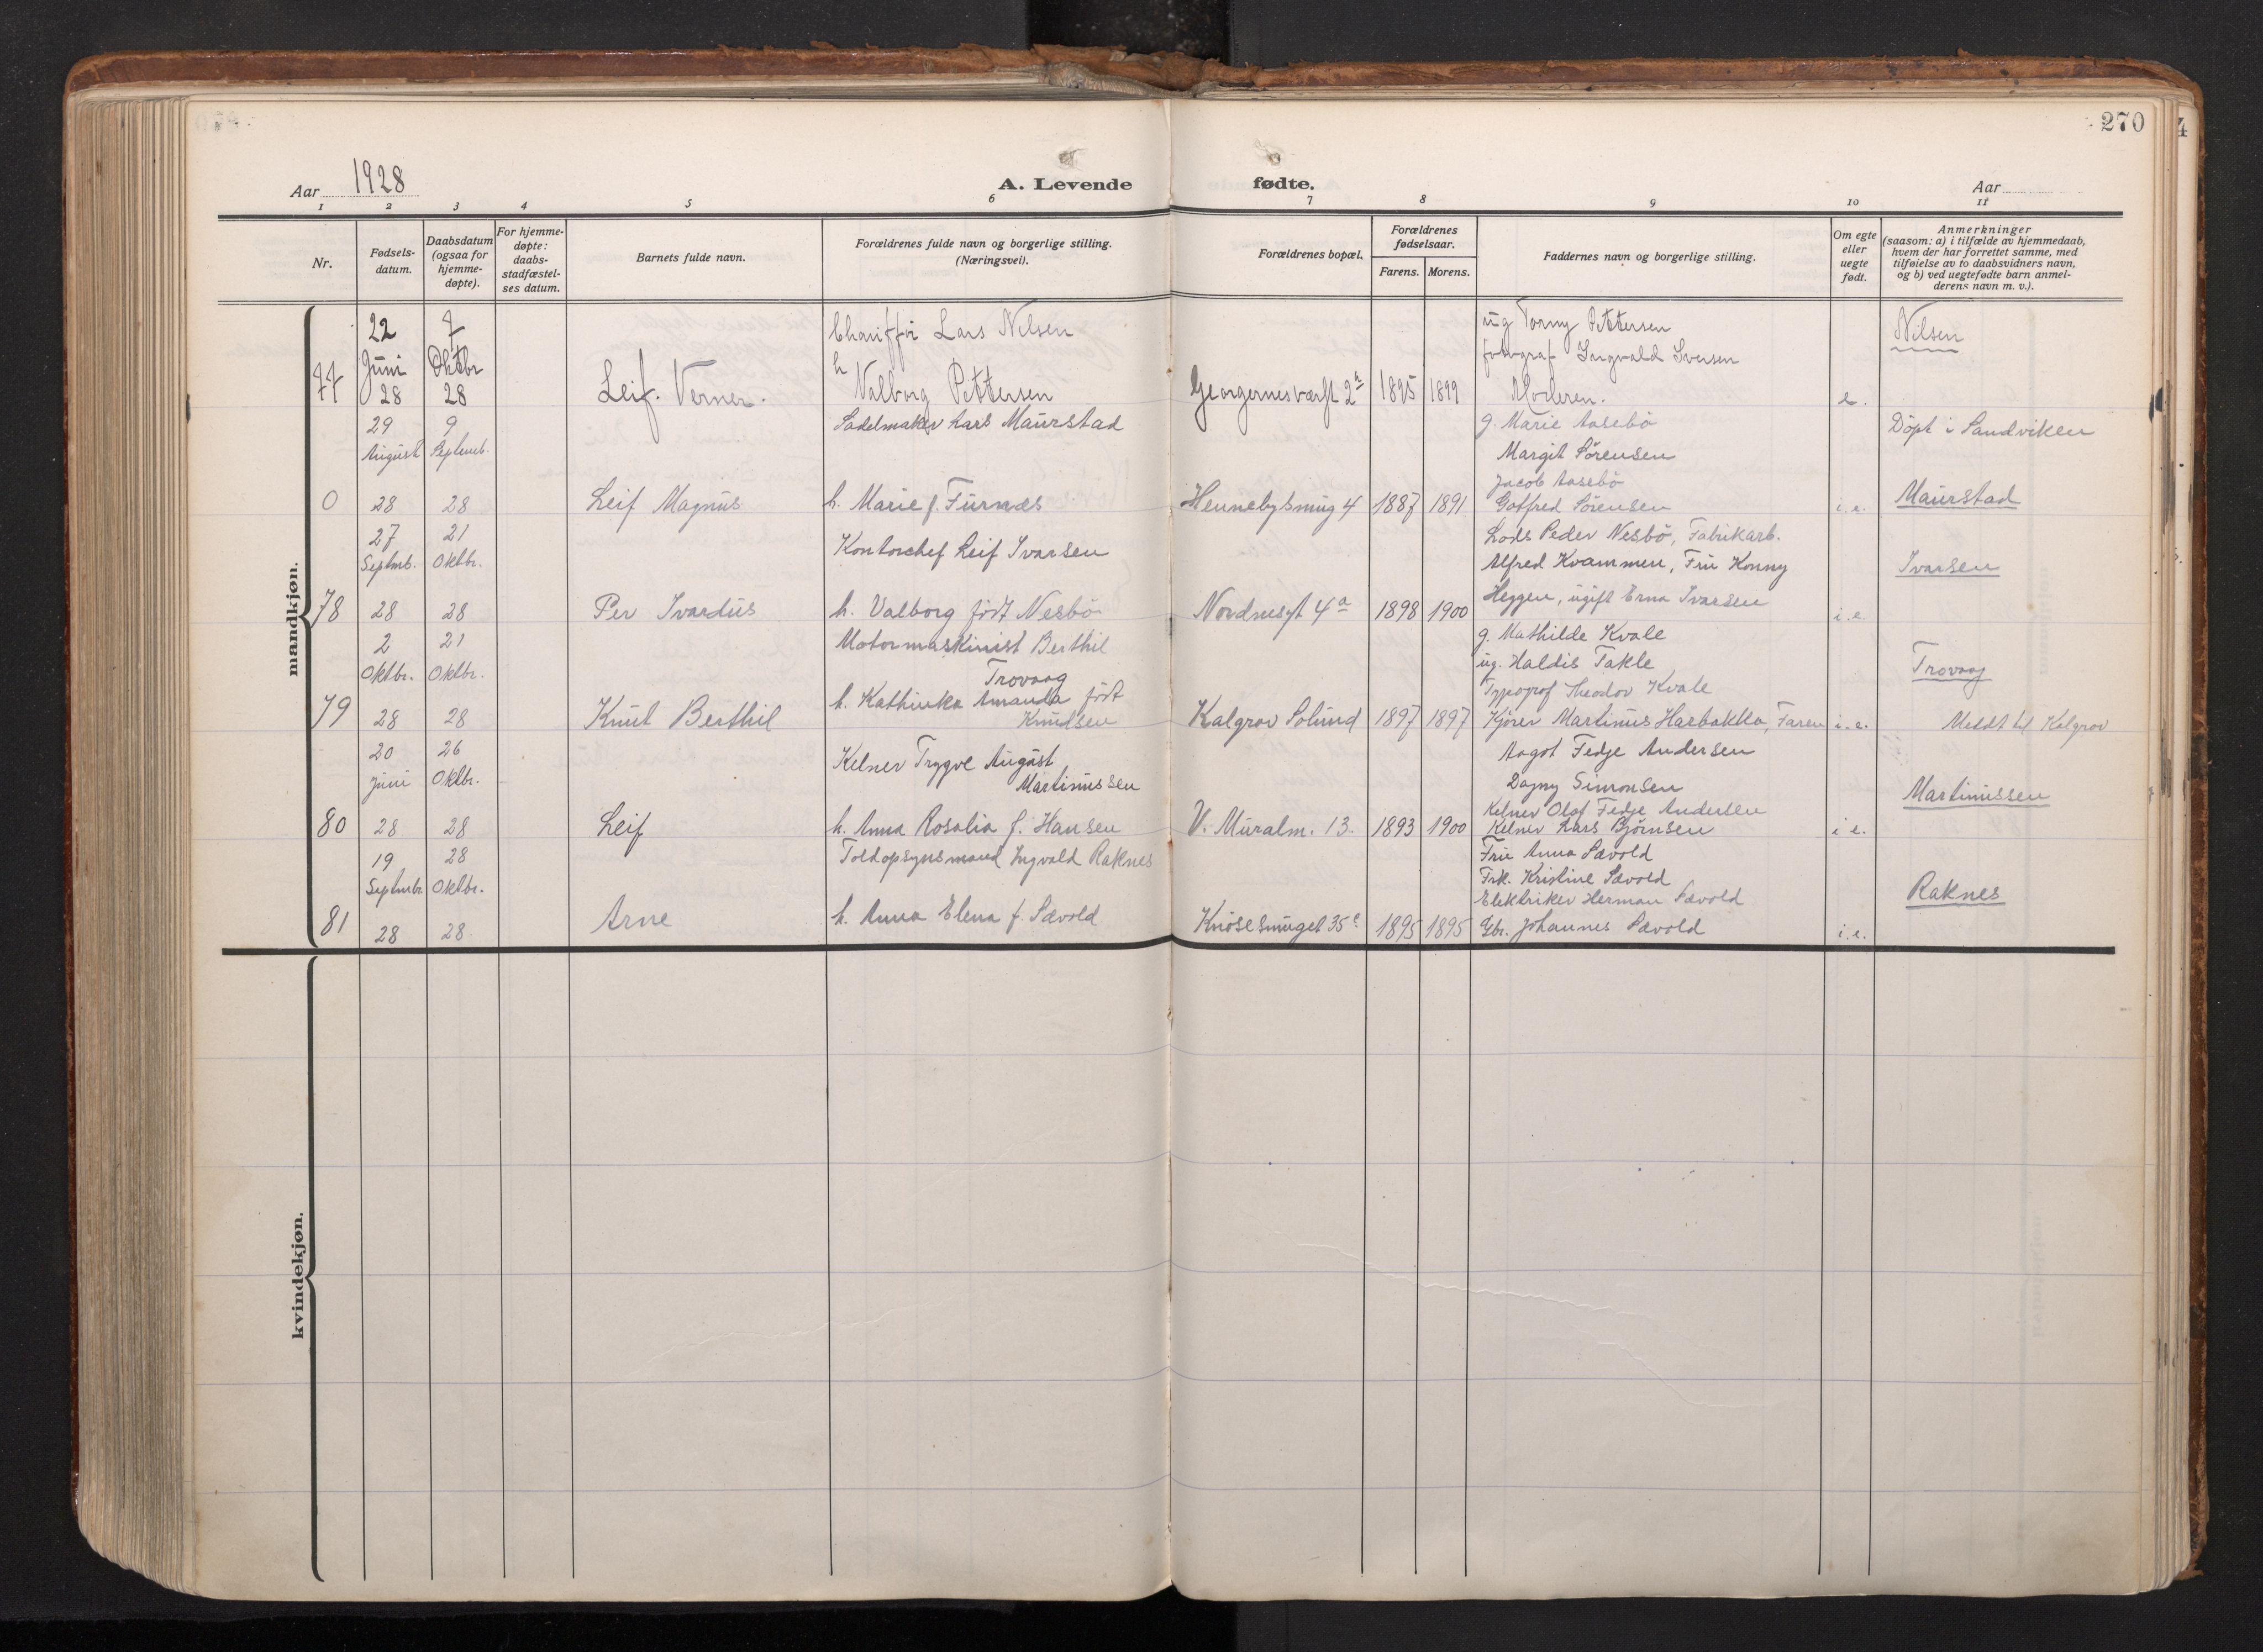 270
Aar 1928
A. Levende fødte.
Aar
1 2 3 4 5 6 7 8 9 10 11
Nr.
Fødsels-
datum.
Daabsdatum
(ogsaa for
hjemme-
døpte).
For hjemme-
døpte:
daabs-
stadfæstel-
ses datum.
Barnets fulde navn.
Forældrenes fulde navn og borgerlige stilling.
(Næringsvei).
Forældrenes bopæl.
Forældrenes
fødselsaar.
Farens. Morens.
Faddernes navn og borgerlige stilling.
Om egte
eller
uegte
født.
Anmerkninger
(saasom: a) i tilfælde av hjemmedaab,
hvem der har forrettet samme, med
tilføielse av to daabsvidners navn,
og b) ved uegtefødte barn anmel-
derens navn m. v.).
mandkjøn.
77
22
Juni
28
7
Oktbr
28
Leif. Verner.
Chauffør Lars Nilsen
h
Valborg Pettersen
Georgernesværft 2a
1895 1899
ug Torny Pettersen
fotograf Ingvald Iversen
Moderen.
e.
Nilsen
0
29
August
28
9
Septemb.
28
Leif Magnus
Sadelmaker Lars Maurstad
h. Marie f. Furnæs
Hennebysmug 4
1887 1891
g. Marie Aasebö
Margit Sörensen
Jacob Aasebö
Gotfred Sörensen
i.e.
Döpt i Sandviken
Maurstad
78
27
Septmb.
28
21
Oktbr.
28
Per Ivardus
Kontorchef Leif Ivarsen
h. Valborg född Nesbö
Nordnesgt 4a
1898 1900
Lods Peder Nesbö, Fabrikarb.
Alfred Kvammen, Fru Konny
Heggen, ugift Erna Ivarsen
i.e.
Ivarsen
79
2
Oktbr.
28
21
Oktbr.
28
Knut Berthil
Motormaskinist Berthil
Trovaag
h. Kathinka Amanda född
Knudsen
Kalgrov Solund
1897 1897
g. Mathilde Kvale
ug. Haldis Takle
Typograf Theodor Kvale
Kjörer Martinus Harbakka, Faren
i.e.
Trovaag
Meldt til Kalgrov
80
20
Juni
28
26
Oktbr.
28
Leif
Kelner Trygve August
Martinussen
h. Anna Rosalia f. Hansen
V. Muralm. 13.
1893 1900
Aagot Fedje Andersen
Dagny Simonsen
Kelner Olaf Fedje Andersen
Kelner Lars Bjørnsen
i e.
Martinussen
81
19
Septmbr.
28
28
Oktbr.
28
Arne
Toldopsynsmand Ingvald Raknes
h. Anna Elena f. Sævold
Knösesmuget 35c
1895 1895
Fru Anna Sævold
Frk. Kristine Sævold
Elektriker Herman Sævold
Gbr. Johannes Sævold
i.e.
Raknes
kvindekjøn.